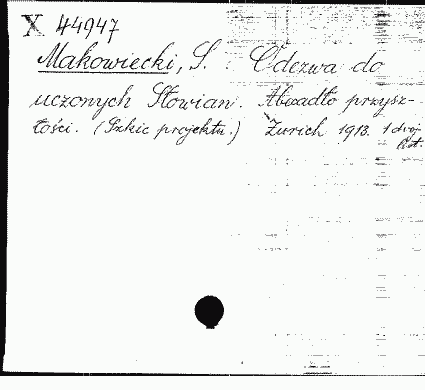 X 44947
Makowiecki, S. Odezwa do
uczonych Słowian. Abecadło przysz-
łości. (Szkic projektu.) Zurich 1913. 1 dwój
list.